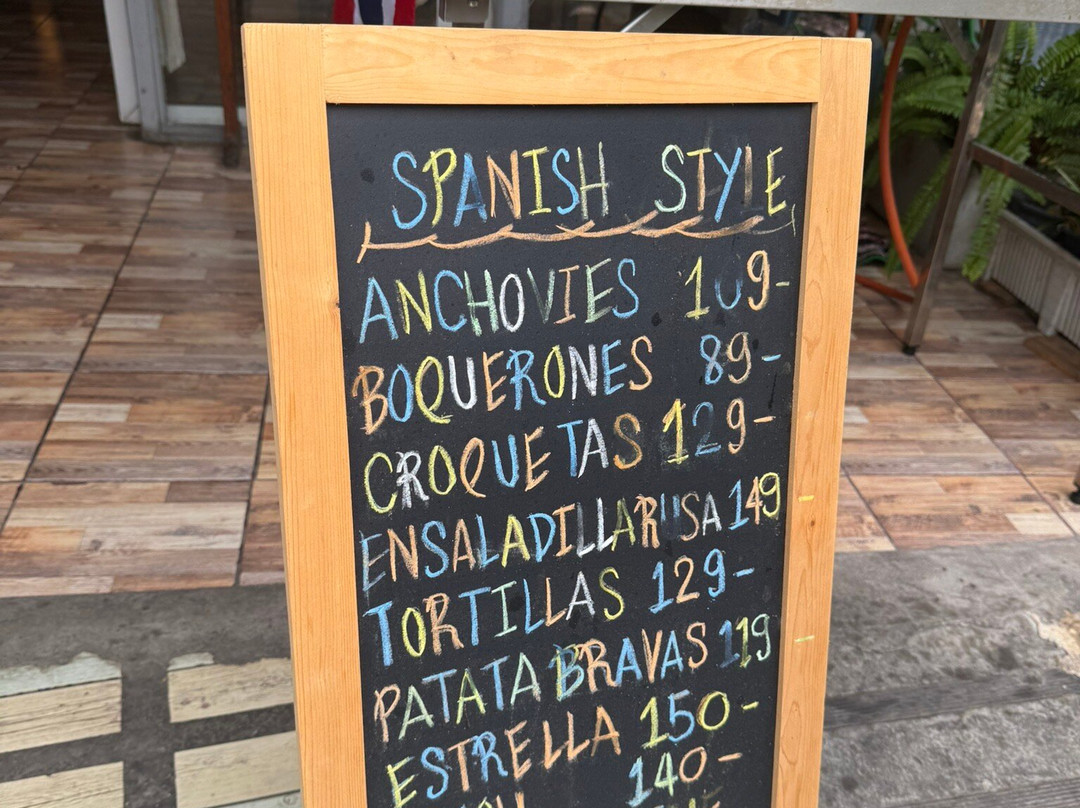 SPANISH STYLE
ANCHOVIES 109-
BOQUERONES 89-
CROQUETAS 129-
ENSALADILLA RUSA 149-
TORTILLAS 129-
PATATA BRAVAS 119-
ESTRELLA 150-
140-